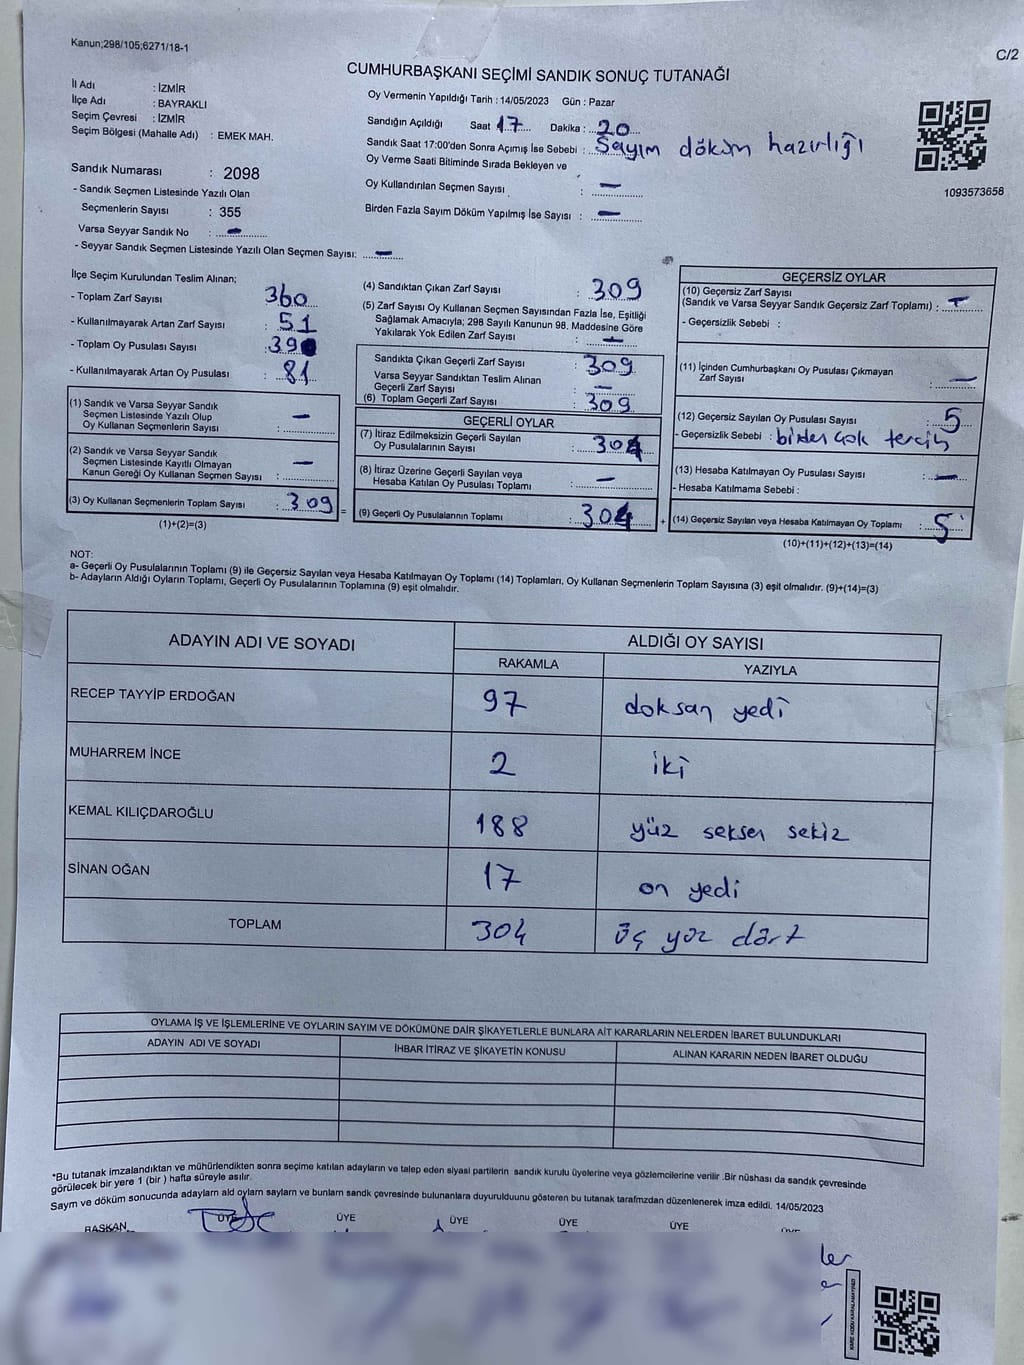 Kanun;298/105;6271/18-1
C/2
CUMHURBAŞKANI SEÇİMİ SANDIK SONUÇ TUTANAĞI
İl Adı : İZMİR
İlçe Adı : BAYRAKLI
Seçim Çevresi : İZMİR
Seçim Bölgesi (Mahalle Adı) : EMEK MAH.
Sandık Numarası : 2098
- Sandık Seçmen Listesinde Yazılı Olan
Seçmenlerin Sayısı : 355
Varsa Seyyar Sandık No : -
- Seyyar Sandık Seçmen Listesinde Yazılı Olan Seçmen Sayısı: -
Oy Vermenin Yapıldığı Tarih : 14/05/2023 Gün : Pazar
Sandığın Açıldığı Saat 17 Dakika : 20
Sandık Saat 17:00'den Sonra Açımış İse Sebebi : Sayım döküm hazırlığı
Oy Verme Saati Bitiminde Sırada Bekleyen ve
Oy Kullandırılan Seçmen Sayısı : -
Birden Fazla Sayım Döküm Yapılmış İse Sayısı : -
1093573658
İlçe Seçim Kurulundan Teslim Alınan;
- Toplam Zarf Sayısı 360
- Kullanılmayarak Artan Zarf Sayısı : 51
- Toplam Oy Pusulası Sayısı : 390
- Kullanılmayarak Artan Oy Pusulası : 81
(1) Sandık ve Varsa Seyyar Sandık
Seçmen Listesinde Yazılı Olup
Oy Kullanan Seçmenlerin Sayısı : -
(2) Sandık ve Varsa Seyyar Sandık
Seçmen Listesinde Kayıtlı Olmayan
Kanun Gereği Oy Kullanan Seçmen Sayısı : -
(3) Oy Kullanan Seçmenlerin Toplam Sayısı : 309
(1)+(2)=(3)
=
(4) Sandıktan Çıkan Zarf Sayısı : 309
(5) Zarf Sayısı Oy Kullanan Seçmen Sayısından Fazla İse, Eşitliği
Sağlamak Amacıyla; 298 Sayılı Kanunun 98. Maddesine Göre
Yakılarak Yok Edilen Zarf Sayısı : -
Sandıkta Çıkan Geçerli Zarf Sayısı : 309
Varsa Seyyar Sandıktan Teslim Alınan
Geçerli Zarf Sayısı : -
(6) Toplam Geçerli Zarf Sayısı : 309
GEÇERLİ OYLAR
(7) İtiraz Edilmeksizin Geçerli Sayılan
Oy Pusulalarının Sayısı : 304
(8) İtiraz Üzerine Geçerli Sayılan veya
Hesaba Katılan Oy Pusulası Toplamı : -
(9) Geçerli Oy Pusulalarının Toplamı : 304
+
GEÇERSİZ OYLAR
(10) Geçersiz Zarf Sayısı
(Sandık ve Varsa Seyyar Sandık Geçersiz Zarf Toplamı) : -
- Geçersizlik Sebebi :
(11) İçinden Cumhurbaşkanı Oy Pusulası Çıkmayan
Zarf Sayısı : -
(12) Geçersiz Sayılan Oy Pusulası Sayısı : 5
- Geçersizlik Sebebi : birden çok tercih
(13) Hesaba Katılmayan Oy Pusulası Sayısı : -
- Hesaba Katılmama Sebebi :
(14) Geçersiz Sayılan veya Hesaba Katılmayan Oy Toplamı : 5
(10)+(11)+(12)+(13)=(14)
NOT:
a- Geçerli Oy Pusulalarının Toplamı (9) ile Geçersiz Sayılan veya Hesaba Katılmayan Oy Toplamı (14) Toplamları, Oy Kullanan Seçmenlerin Toplam Sayısına (3) eşit olmalıdır. (9)+(14)=(3)
b- Adayların Aldığı Oyların Toplamı, Geçerli Oy Pusulalarının Toplamına (9) eşit olmalıdır.
ADAYIN ADI VE SOYADI ALDIĞI OY SAYISI
RAKAMLA YAZIYLA
RECEP TAYYİP ERDOĞAN 97 doksan yedi
MUHARREM İNCE 2 iki
KEMAL KILIÇDAROĞLU 188 yüz seksen sekiz
SİNAN OĞAN 17 on yedi
TOPLAM 304 üç yüz dört
OYLAMA İŞ VE İŞLEMLERİNE VE OYLARIN SAYIM VE DÖKÜMÜNE DAİR ŞİKAYETLERLE BUNLARA AİT KARARLARIN NELERDEN İBARET BULUNDUKLARI
ADAYIN ADI VE SOYADI İHBAR İTİRAZ VE ŞİKAYETİN KONUSU ALINAN KARARIN NEDEN İBARET OLDUĞU
*Bu tutanak imzalandıktan ve mühürlendikten sonra seçime katılan adayların ve talep eden siyasi partilerin sandık kurulu üyelerine veya gözlemcilerine verilir .Bir nüshası da sandık çevresinde
görülecek bir yere 1 (bir ) hafta süreyle asılır.
Saym ve döküm sonucunda adaylarn ald oylarn saylarn ve bunlarn sandk çevresinde bulunanlara duyurulduunu gösteren bu tutanak tarafmzdan düzenlenerek imza edildi. 14/05/2023
BAŞKAN ÜYE ÜYE ÜYE ÜYE ÜYE